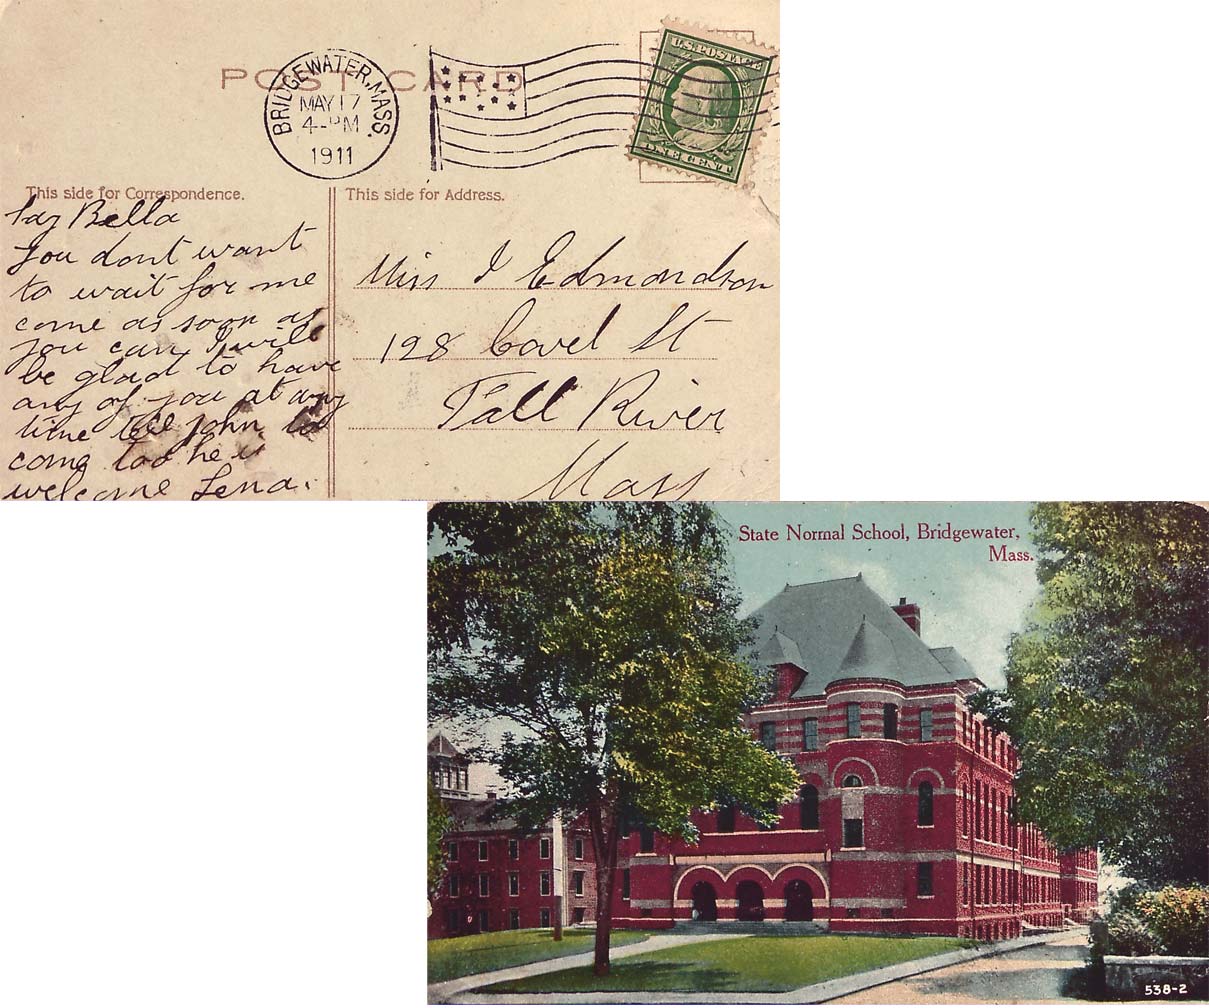 POST CARD
BRIDGEWATER, MASS.
MAY 17
4-PM
1911
U.S. POSTAGE
ONE CENT
This side for Correspondence.
This side for Address.
Say Bella
You dont want
to wait for me
come as soon as
you can I will
be glad to have
any of you at any
time tell John to
come too he is
welcome Lena.
Miss I Edmondson
128 Covel St
Fall River
Mass
State Normal School, Bridgewater,
Mass.
538-2